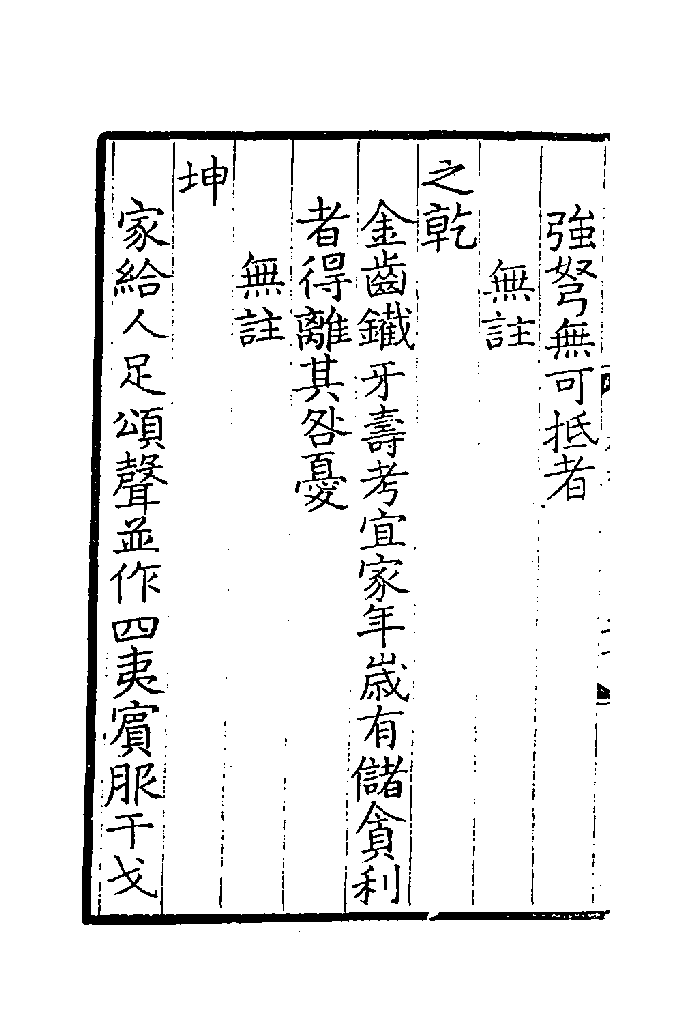 強弩無可抵者
無註
之乾
金齒鐵牙壽考宜家年歳有儲貪利
者得離其咎憂
無註
坤
家給人足頌聲並作四夷賓服干戈